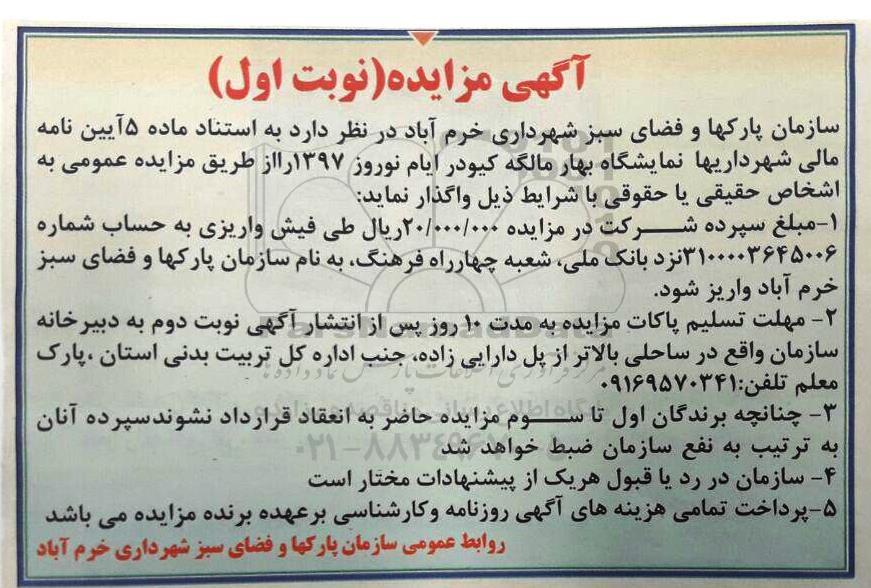 آگهی مزایده(نوبت اول)
سازمان پارکها و فضای سبز شهرداری خرم آباد در نظر دارد به استناد ماده ۵آیین نامه
مالی شهرداریها نمایشگاه بهار مالگه کیودر ایام نوروز ۱۳۹۷رااز طریق مزایده عمومی به
اشخاص حقیقی یا حقوقی با شرایط ذیل واگذار نماید:
۱-مبلغ سپرده شرکت در مزایده ۲۰/۰۰۰/۰۰۰ریال طی فیش واریزی به حساب شماره
۳۱۰۰۰۰۳۶۴۵۰۰۶نزد بانک ملی، شعبه چهارراه فرهنگ، به نام سازمان پارکها و فضای سبز
خرم آباد واریز شود.
۲- مهلت تسلیم پاکات مزایده به مدت ۱۰ روز پس از انتشار آگهی نوبت دوم به دبیرخانه
سازمان واقع در ساحلی بالاتر از پل دارایی زاده، جنب اداره کل تربیت بدنی استان ،پارک
معلم تلفن:۰۹۱۶۹۵۷۰۳۴۱
۳- چنانچه برندگان اول تا سوم مزایده حاضر به انعقاد قرارداد نشوندسپرده آنان
به ترتیب به نفع سازمان ضبط خواهد شد
۴- سازمان در رد یا قبول هریک از پیشنهادات مختار است
۵-پرداخت تمامی هزینه های آگهی روزنامه وکارشناسی برعهده برنده مزایده می باشد
روابط عمومی سازمان پارکها و فضای سبز شهرداری خرم آباد
ParsNamadData